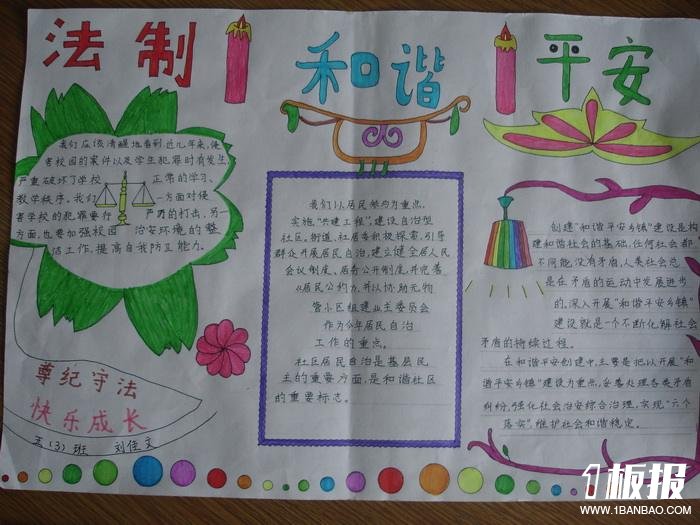 法制 和谐 平安
我们应该清醒地看到,近几年来,侵
害校园的案件以及学生犯罪时有发生,
严重破坏了学校 正常的学习、
教学秩序。我们 一方面对侵
害学校的犯罪要行 严厉的打击,另一
方面,也要加强校园 治安环境的整
洁工作,提高自我防卫能力。
尊纪守法
快乐成长
五(3)班 刘佳文
我们以居民等为重点,
实施“共建工程”,建设自治型
社区。街道、社居委积极探索,引导
群众开展居民自治,建立健全居人民
会议制度、居务公开制度,并完善
《居民公约》,并以协助无物
管小区组建业主委员会
作为今年居民自治
工作的重点。
社区居民自治是基层民
主的重要方面,是和谐社区
的重要标志。
创建“和谐平安乡镇”建设是构
建和谐社会的基础,任何社会都
不可能没有矛盾,人类社会总
是在矛盾的运动中发展进步
的,深入开展“和谐平安乡镇”
建设就是一个不断化解社会
矛盾的持续过程。
在和谐平安创建中,主要是把以开展“和
谐平安乡镇”建设为重点,妥善处理各类矛盾
纠纷,强化社会治安综合治理,实现“六个
落实”,维护社会和谐稳定。
1板报
WWW.1BANBAO.COM